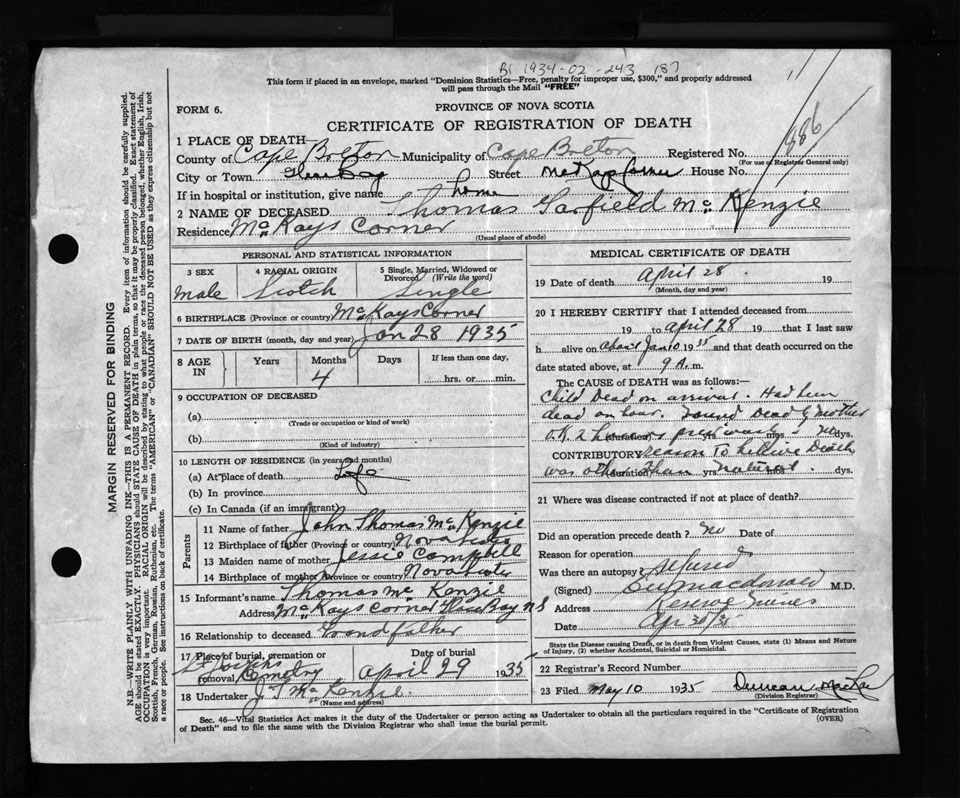 B1 1934-02-243 187
This form if placed in an envelope, marked "Dominion Statistics—Free, penalty for improper use, $300," and properly addressed
will pass through the Mail "FREE"
886
FORM 6.
PROVINCE OF NOVA SCOTIA
CERTIFICATE OF REGISTRATION OF DEATH
1 PLACE OF DEATH—
County of Cape Breton Municipality of Cape Breton Registered No.
(For use of Registrar General only)
City or Town Glace Bay Street McKays Corner House No.
If in hospital or institution, give name home
2 NAME OF DECEASED Thomas Garfield McKenzie
Residence McKays Corner
(Usual place of abode)
PERSONAL AND STATISTICAL INFORMATION
3 SEX 4 RACIAL ORIGIN 5 Single, Married, Widowed or Divorced (Write the word)
male Scotch Single
6 BIRTHPLACE (Province or country) McKays Corner
7 DATE OF BIRTH (month, day and year) Jan 28 1935
8 AGE IN Years Months Days If less than one day,
4 hrs. or min.
9 OCCUPATION OF DECEASED
(a)
(Trade or occupation or kind of work)
(b)
(Kind of industry)
10 LENGTH OF RESIDENCE (in years and months)
(a) At place of death Life
(b) In province
(c) In Canada (if an immigrant)
Parents
11 Name of father John Thomas McKenzie
12 Birthplace of father (Province or country) Nova Scotia
13 Maiden name of mother Jessie Campbell
14 Birthplace of mother (Province or country) Nova Scotia
15 Informant's name Thomas McKenzie
Address McKays Corner Glace Bay N S
16 Relationship to deceased Grand father
17 Place of burial, cremation or removal Cemetry Date of burial April 29 1935
18 Undertaker J T McKenzie
(Name and address)
MEDICAL CERTIFICATE OF DEATH
19 Date of death April 28 19
(Month, day and year)
20 I HEREBY CERTIFY that I attended deceased from
19 to April 28 19 that I last saw
h alive on about Jan 10 1935 and that death occurred on the
date stated above, at 9 A. m.
The CAUSE of DEATH was as follows:—
Child Dead on arrival. Had been
dead an hour. Found Dead by Mother
O.K. 2 hours (duration) yrs. mos. No dys.
CONTRIBUTORY reason to believe Death
was other (duration) than yrs. natural. dys.
21 Where was disease contracted if not at place of death?
Did an operation precede death? no Date of
Reason for operation
Was there an autopsy? refused
(Signed) Macdonald M.D.
Address
Date Apr 30/35
State the Disease causing Death, or in death from Violent Causes, state (1) Means and Nature
of Injury, (2) whether Accidental, Suicidal or Homicidal.
22 Registrar's Record Number
23 Filed May 10 1935 Duncan
(Division Registrar)
Sec. 46—Vital Statistics Act makes it the duty of the Undertaker or person acting as Undertaker to obtain all the particulars required in the "Certificate of Registration
of Death" and to file the same with the Division Registrar who shall issue the burial permit.
(OVER)
MARGIN RESERVED FOR BINDING
N.B.—WRITE PLAINLY WITH UNFADING INK—THIS IS A PERMANENT RECORD. Every item of information should be carefully supplied.
AGE should be stated EXACTLY. PHYSICIANS should STATE CAUSE OF DEATH in plain terms, so that it may be properly classified. Exact statement of
OCCUPATION is very important. RACIAL ORIGIN will be described by stating to what people or race the deceased person belonged, whether English, Irish,
Scottish, French, German, Russian, Ruthenian, etc. The terms "AMERICAN" or "CANADIAN" SHOULD NOT BE USED as they express citizenship but not
a race or people. See instructions on back of certificate.